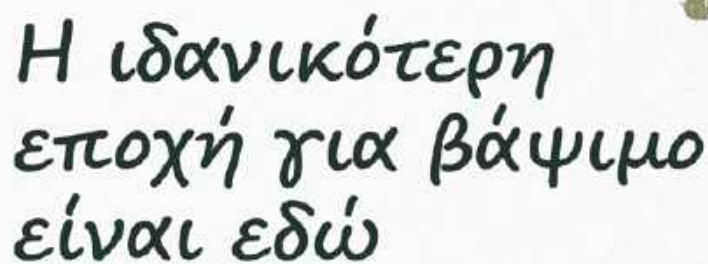 Η ιδανικότερη
εποχή για βάψιμο
είναι εδώ